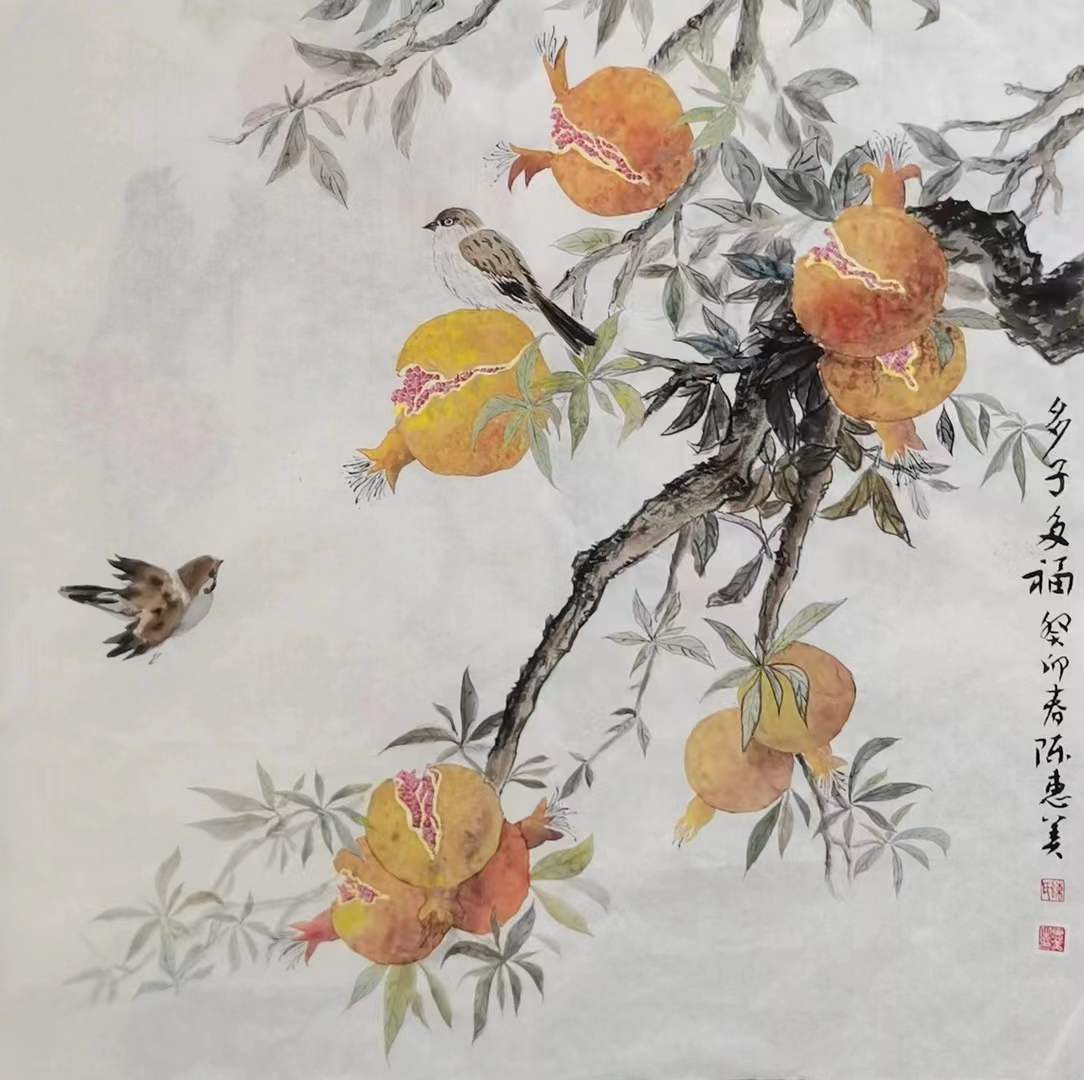 多子多福 癸卯春 陈惠美